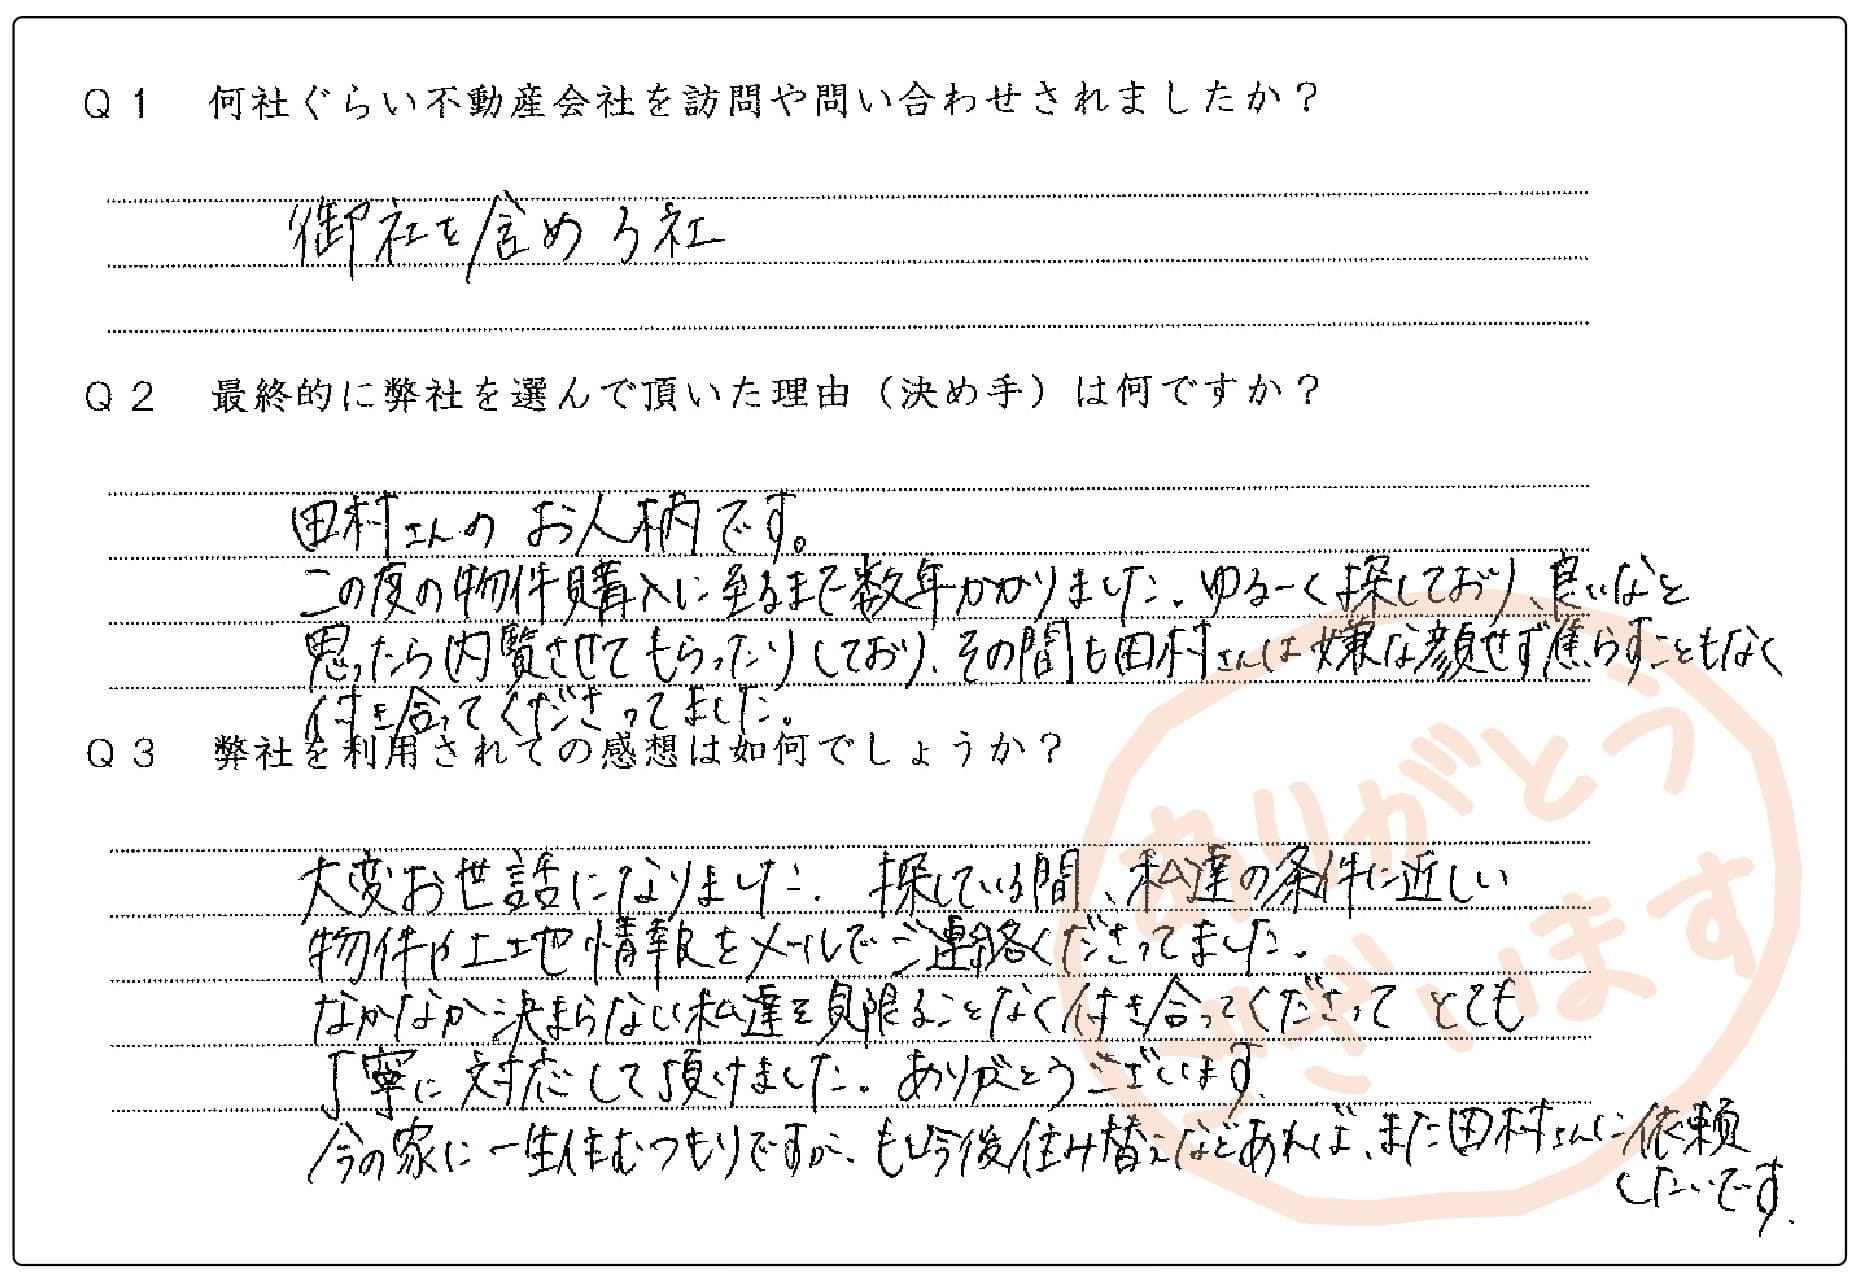 Q1 何社ぐらい不動産会社を訪問や問い合わせされましたか?
御社を含め3社
Q2 最終的に弊社を選んで頂いた理由(決め手)は何ですか?
田村さんの お人柄です。
この度の物件購入に至るまで数年かかりました。ゆるーく探しており、良いなと
思ったら内覧させてもらったりしており、その間も田村さんは嫌な顔せず焦らすこともなく
付き合ってくださってました。
Q3 弊社を利用されての感想は如何でしょうか?
大変お世話になりました。 探している間、私達の条件に近しい
物件や土地情報をメールでご連絡くださってました。
なかなか決まらない私達を見限ることなく付き合ってくださって とても
丁寧に対応して頂けました。ありがとうございます。
今の家に一生住むつもりですが、もし今後住み替えなどあれば、また田村さんに依頼
したいです。
ありがとう
ございます